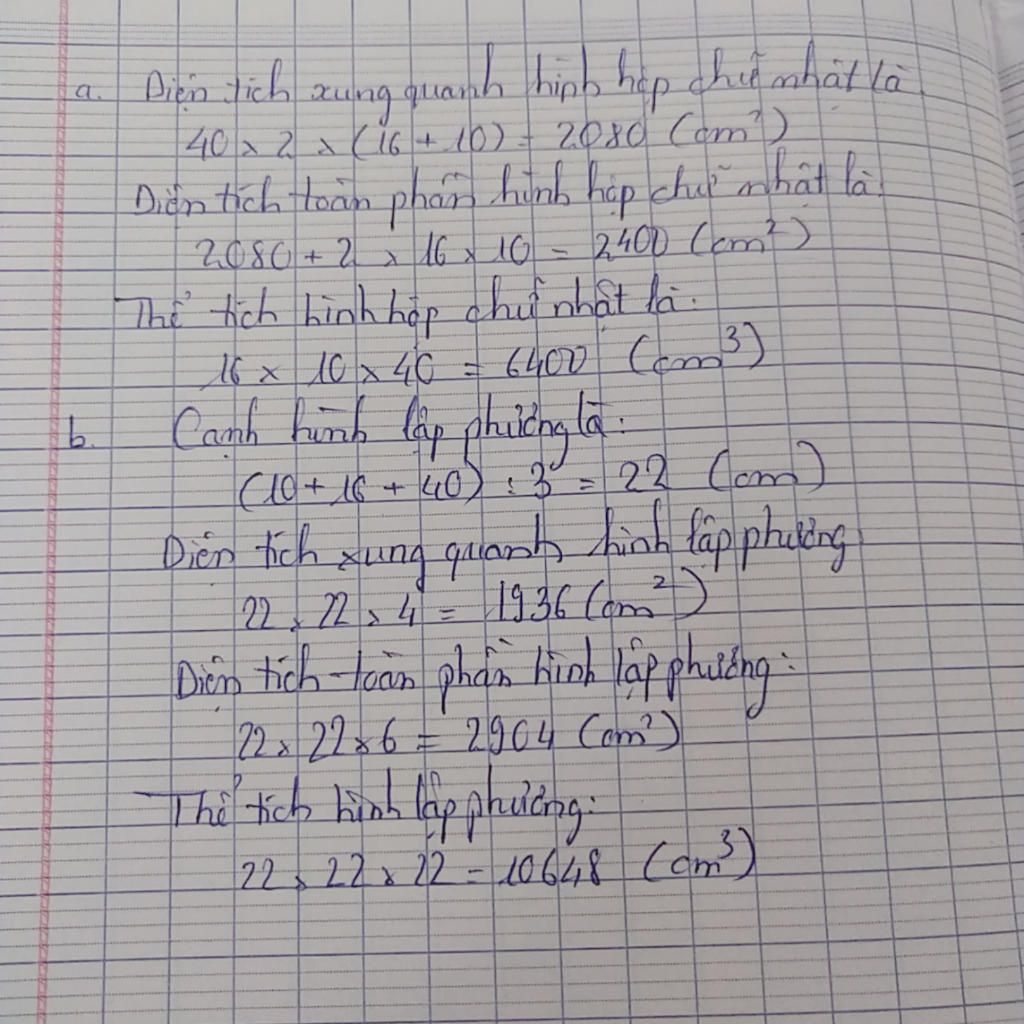 a. Diện tích xung quanh hình hộp chữ nhật là
40 x 2 x (16 + 10) = 2080 (cm²)
Diện tích toàn phần hình hộp chữ nhật là
2080 + 2 x 16 x 10 = 2400 (cm²)
Thể tích hình hộp chữ nhật là:
16 x 10 x 40 = 6400 (cm³)
b. Cạnh hình lập phương là:
(10 + 16 + 40) : 3 = 22 (cm)
Diện tích xung quanh hình lập phương
22 x 22 x 4 = 1936 (cm²)
Diện tích toàn phần hình lập phương:
22 x 22 x 6 = 2904 (cm²)
Thể tích hình lập phương:
22 x 22 x 22 = 10648 (cm³)